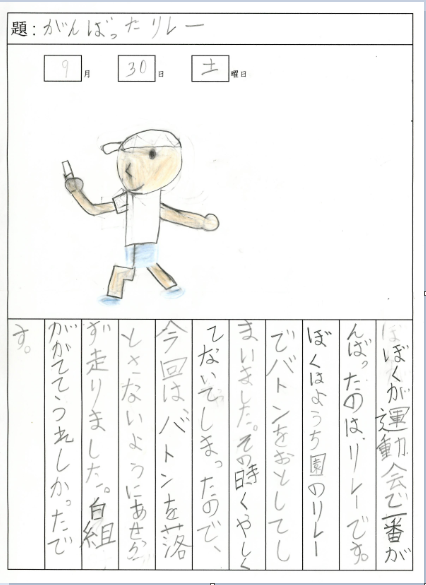 題：がんばったリレー
9月 30日 土曜日
ぼくが運動会で一番が
んばったのは、リレーです。
ぼくはようち園のリレー
でバトンをおとしてし
まいました。その時くやしく
てないでしまったので、
今回はバトンを落
とさないようにあせら
ず走りました。白組
がかててうれしかったで
す。